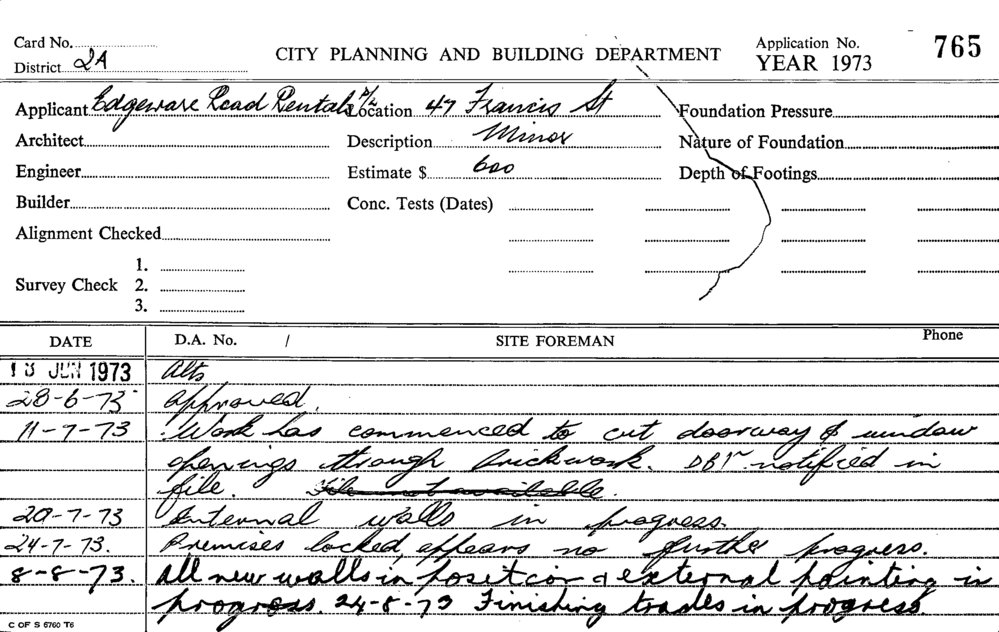 Card No.
District 2A
CITY PLANNING AND BUILDING DEPARTMENT
Application No. 765
YEAR 1973
Applicant Edgeware Road Rentals P/L Location 47 Francis St Foundation Pressure
Architect Description Minor Nature of Foundation
Engineer Estimate $ 600 Depth of Footings
Builder Conc. Tests (Dates)
Alignment Checked
1.
Survey Check 2.
3.
DATE D.A. No. / SITE FOREMAN Phone
JUN 1973 Alts
28-6-73 Approved.
11-7-73 Work has commenced to cut doorway & window
openings through brickwork. notified in
file. File not available.
20-7-73 Internal walls in progress.
24-7-73. Premises locked, appears no further progress.
8-8-73. All new walls in position & external painting is
progress. 24-8-73 Finishing trades in progress.
C OF S 5760 T6